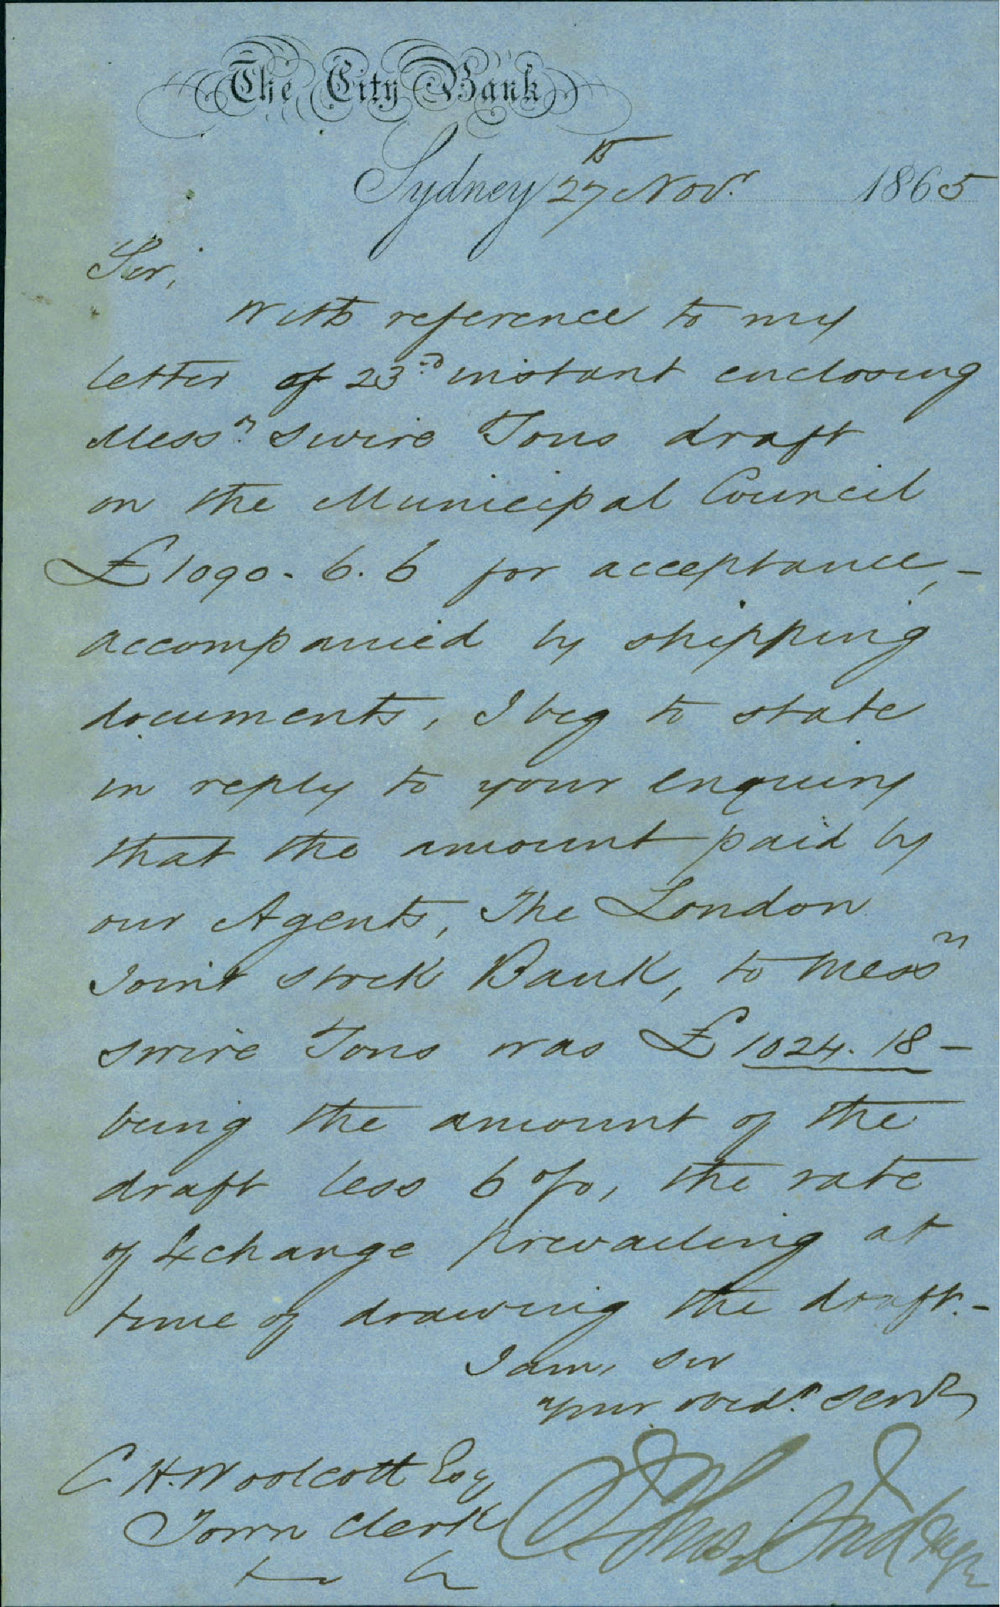 The City Bank
Sydney 27th Novr. 1865
Sir,
With reference to my
letter of 23rd instant enclosing
Messrs Swire Sons draft
on the Municipal Council
£1090.6.6 for acceptance, -
accompanied by shipping
documents, I beg to state
in reply to your enquiry
that the amount paid by
our Agents, The London
Joint Stock Bank, to Messrs
Swire Sons was £1024.18 -
being the amount of the
draft less 6 o/o, the rate
of Exchange prevailing at
time of drawing the draft. -
I am, Sir
Your obedt. Servt
C H. Woolcott Esq
Town Clerk